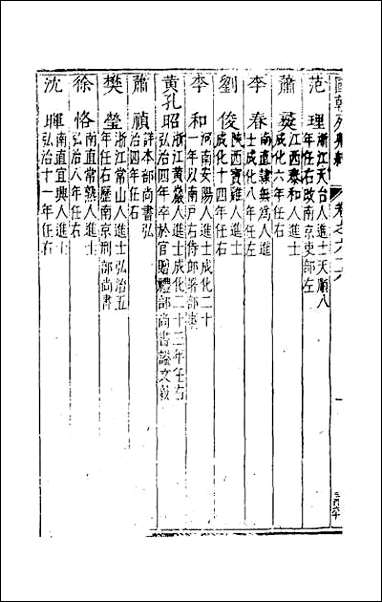 國朝列卿紀 卷之六十六
范理 浙江天台人進士天順八
年任右改南京吏部左
蕭
江西泰和人進士
成化六年任右
李春 南直隸無為人進
士成化八年任左
劉俊 陝西寶雞人進士
成化十四年任右
李和 河南安陽人進士成化二十
一年以南戶右侍郎署部事
黃孔昭 浙江黃巖人進士成化二十三年任右
弘治四年卒於官贈禮部尚書謚文毅
蕭禎 詳本部尚書弘
治四年任右
樊瑩 浙江常山人進士弘治五
年任右歷南京刑部尚書
徐恪 南直常熟人進士
弘治八年任右
沈暉 南直宜興人進士
弘治十一年任右